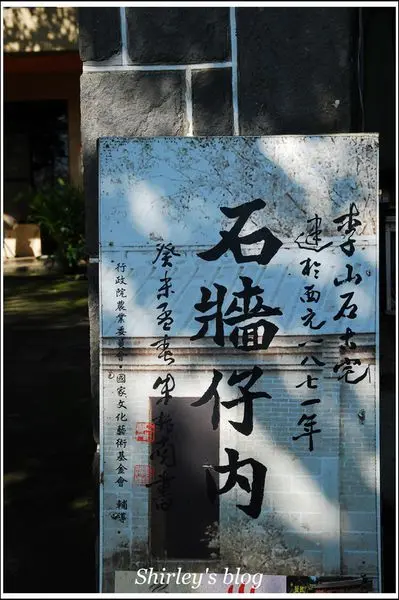 李山石古宅
建於西元一八七一年
石牆仔內
癸未孟春朱振南書
行政院農業委員會・國家文化藝術基金會 輔導
Shirley's blog